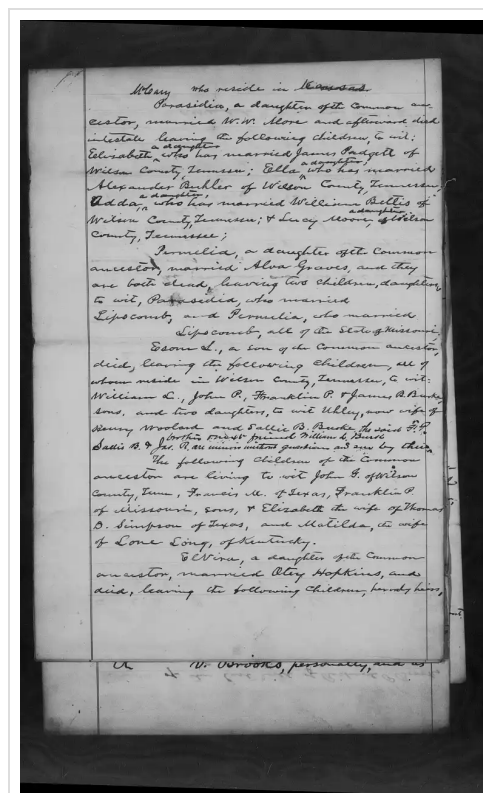 McCary who reside in Kansas
Parasidia, a daughter of the Common an-
cestor, married W. W. More and afterward died
intestate leaving the following children, to wit:
a daughter
Elisabeth, who has married James Padgett of
a daughter,
Wilson County, Tennessee; Ella, who has married
Alexander Buhler of Wilson County, Tennessee;
a daughter,
Adda, who has married William Bettis of
a daughter,
Wilson County, Tennessee; & Lucy Moore, of Wilson
County, Tennessee;
Permelia, a daughter of the Common
ancestor, married Alva Graves, and they
are both dead, leaving two children, daughters,
to wit, Parasidia, who married
Lipscomb, and Permelia, who married
Lipscomb, all of the State of Missouri,
Esom L., a son of the Common ancestor,
died, leaving the following children, all of
whom reside in Wilson County, Tennessee, to wit:
William L., John P., Franklin P. & James B. Burke,
sons, and two daughters, to wit Ulley, now wife of
Henry Woolard and Sallie B. Burke, the said F. P.
Sallie B. & Jas. B. are minors without guardian and sue by their
brother and next friend William L. Burke
The following children of the Common
ancestor are living to wit John G. of Wilson
County, Tenn, Francis M. of Texas, Franklin P.
of Missouri, sons, & Elizabeth the wife of Thomas
D. Simpson of Texas, and Matilda, the wife
of Lone Long, of Kentucky.
Elvira, a daughter of the Common
ancestor, married Otey Hopkins, and
died, leaving the following children, her only heirs,
V. Brooks, personally, and as